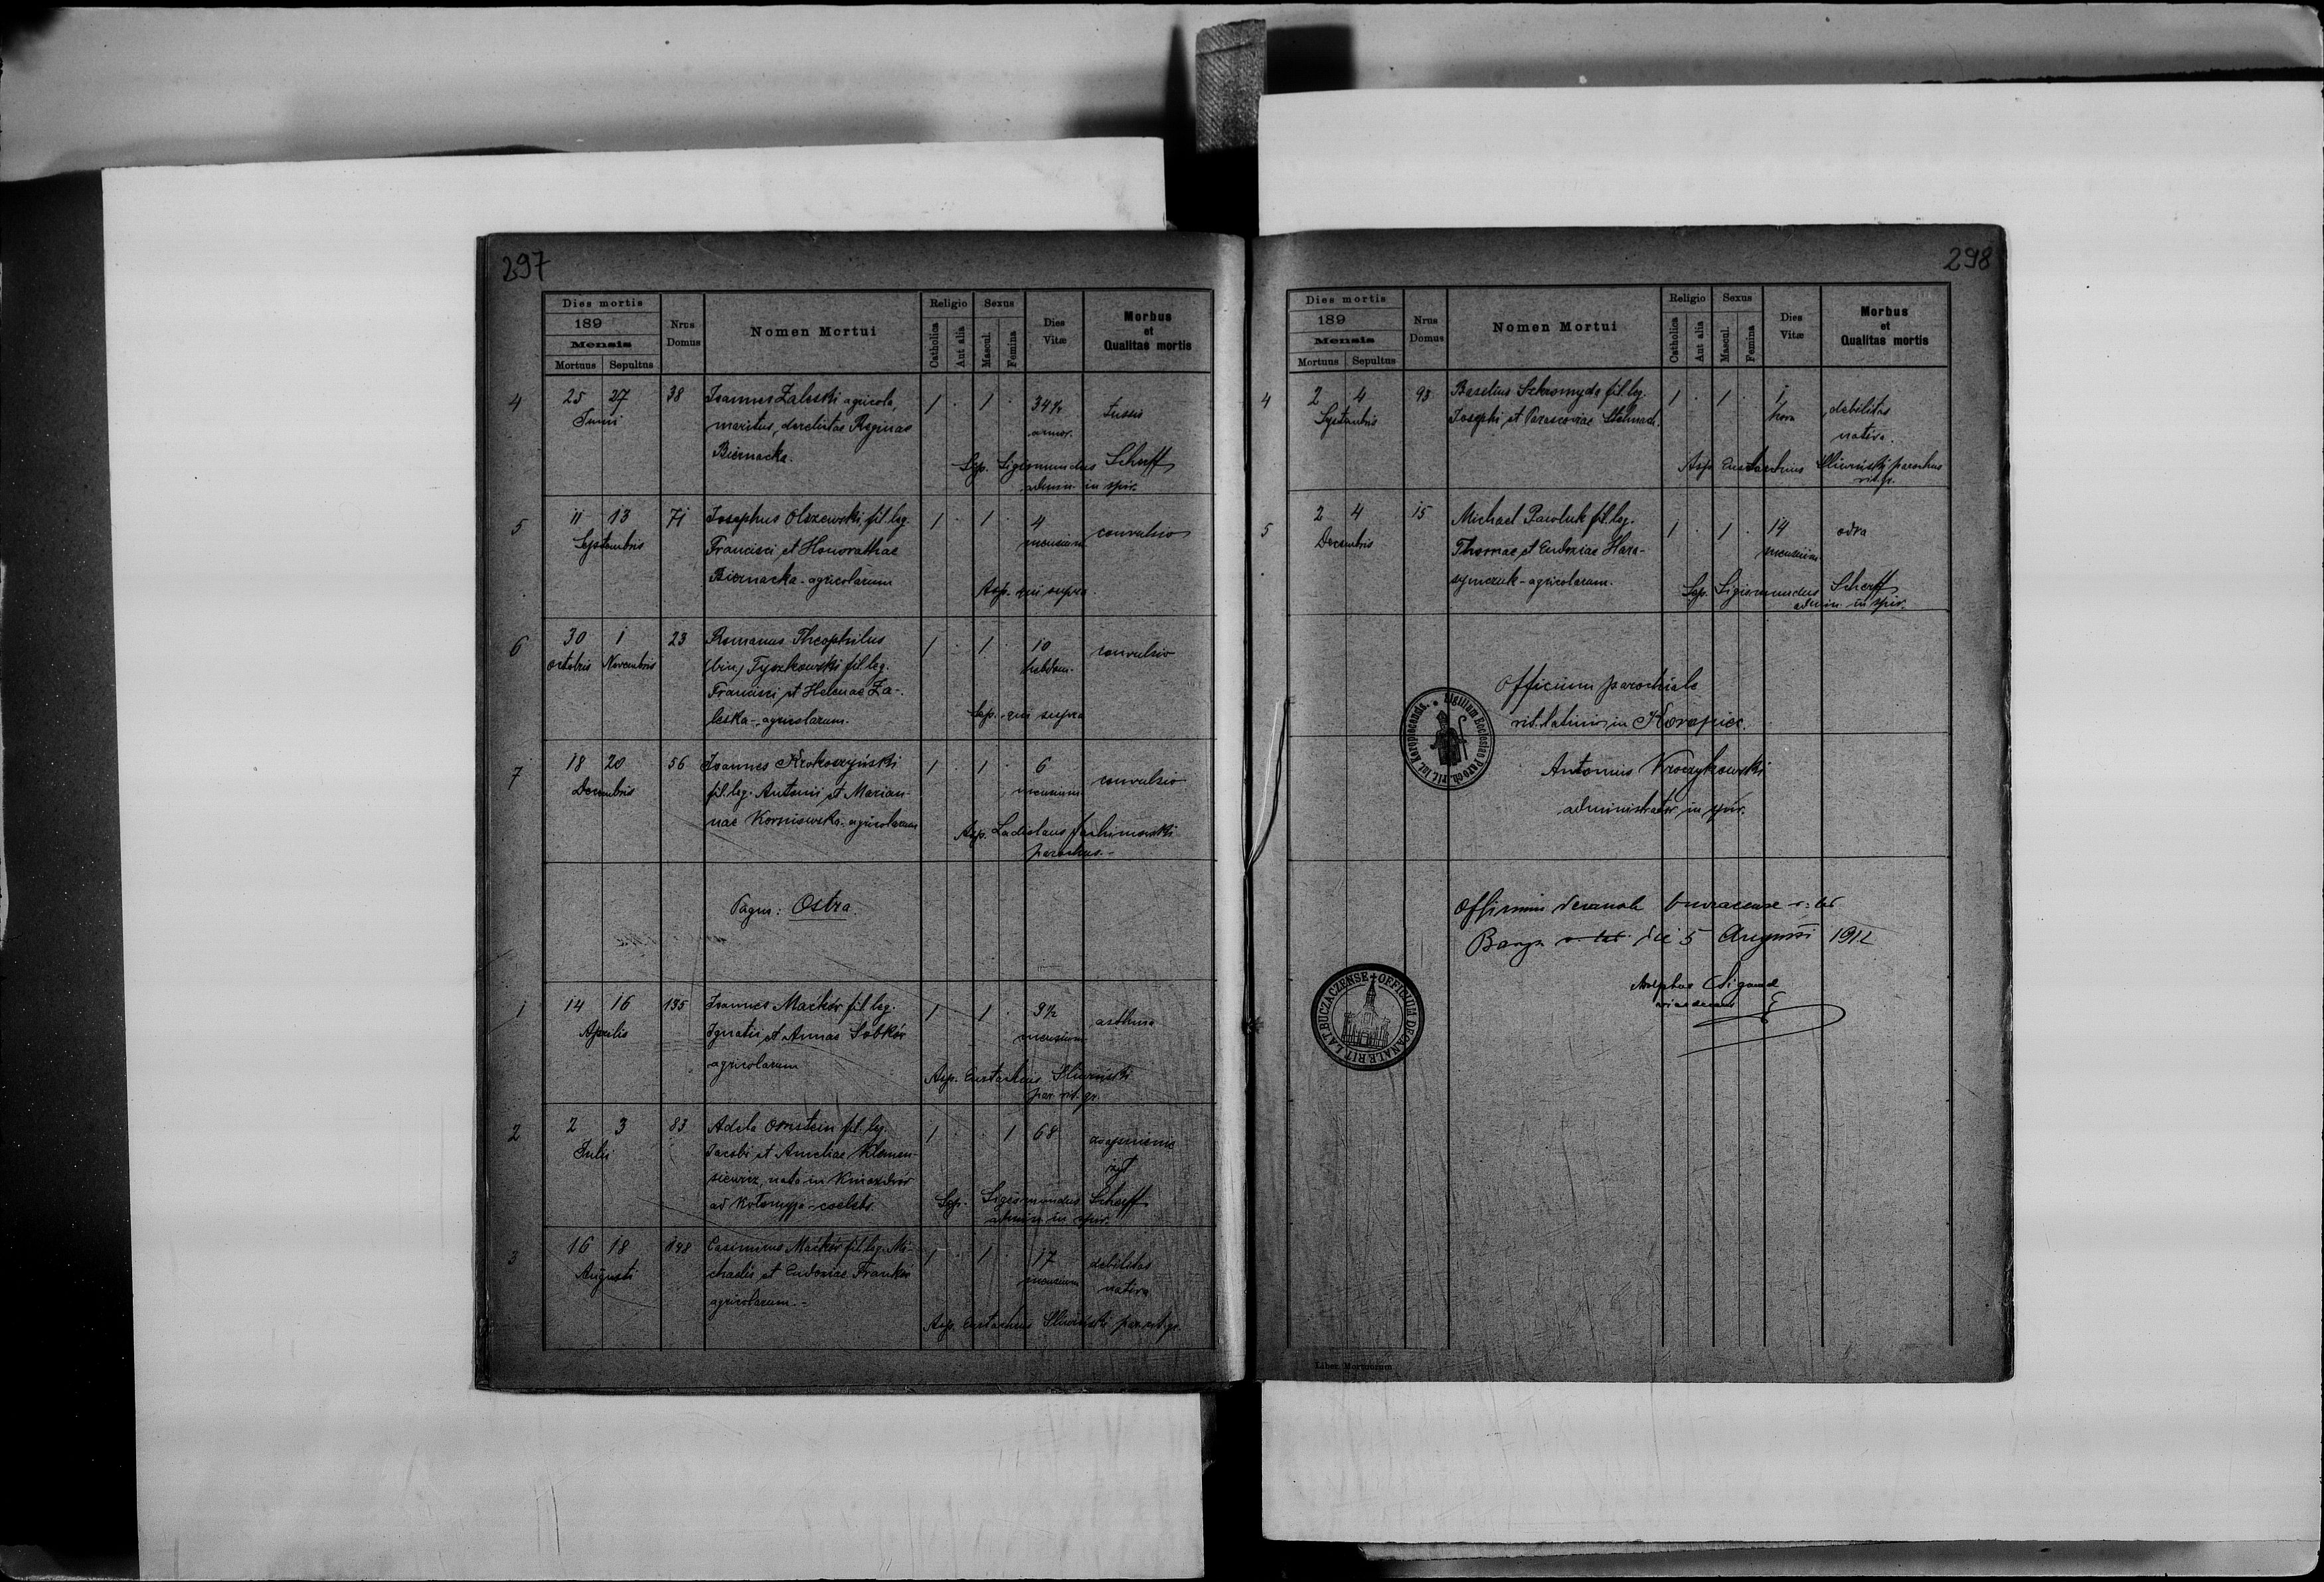 297
Dies mortis
189
Mensis
Mortuus Sepultus
Nrus Domus
Nomen Mortui
Religio
Catholica
Aut alia
Sexus
Mascul.
Femina
Dies Vitæ
Morbus et Qualitas mortis
4 25 27 38 Joannes Zaleski agricola, 1 . 1 . 34½ tussis
Junii maritus, derelictae Reginae annor.
Biernacka.
Sep. Sigismundus Scherff
admin. in spir.
5 11 13 71 Josephus Olszewski, fil. leg. 1 . 1 . 4 convulsio
Septembris Francisci et Honorathae mensium
Biernacka - agricolarum
Asp. qui supra.
6 30 1 23 Romanus Theophilus 1 . 1 . 10 convulsio
Octobris Novembris (bin.) Tyszkowski fil. leg. hebdom.
Francisci et Helenae Za-
leska - agricolarum.
Sep. qui supra
7 18 20 56 Joannes Krokoszyński 1 . 1 . 6 convulsio
Decembris fil. leg. Antonii et Marian- mensium
nae Korniowska - agricolarum
Asp. Ladislaus
parochus. -
Pagus: Ostra.
1 14 16 135 Joannes Maćków fil. leg. 1 . 1 . 3½ asthma
Aprilis Ignatii et Annae Sobków mensium
agricolarum
Asp. Eustachius Śliwiński
par. rit. gr.
2 2 3 83 Adela Ornstein fil. leg. 1 . . 1 68
Julii Jacobi et Ameliae Klemen-
siewicz, nata in Kniaźdwór
ad Kołomyja - coelebs.
Sep. Sigismundus Scherff
admin. in spir.
3 16 18 148 Casimirus Maćków fil. leg. Mi- 1 . 1 . 17 debilitas
Augusti chaelis et Eudoxiae Franków mensium nativa
agricolarum. -
Asp. Eustachius Śliwiński par. rit. gr.
298
Dies mortis
189
Mensis
Mortuus Sepultus
Nrus Domus
Nomen Mortui
Religio
Catholica
Aut alia
Sexus
Mascul.
Femina
Dies Vitæ
Morbus et Qualitas mortis
4 2 4 93 Baselius Szkromyda fil. leg. 1 . 1 . 1 debilitas
Septembris Josephi et Parascoviae Stelmach. hora nativa.
Asp. Eustachius Śliwiński parochus
rit. gr.
5 2 4 15 Michael Pawluk fil. leg. 1 . 1 . 14 odra
Decembris Thomae et Eudoxiae Hara- mensium
symczuk - agricolarum.
Sep. Sigismundus Scherff
admin. in spir.
Officium parochiale
rit. latini, in Koropiec.
Sigillum Ecclesiae Paroch. rit. lat. Koropiecensis.
Antonius
administrator in spir.
Officium decanale r. lat
die 5 Augusti 1912
OFFICIUM DECANALE RIT. LAT. BUCZACZENSE
Adolphus
Liber Mortuorum